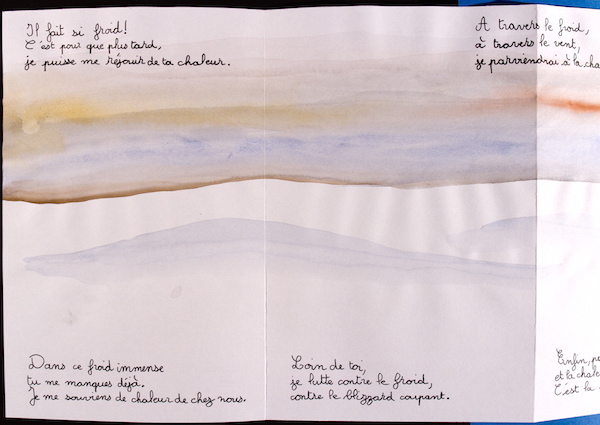 Il fait si froid!
C'est pour que plus tard,
je puisse me réjouir de ta chaleur.
A travers le froid,
à travers le vent,
je parviendrai à la
Dans ce froid immense
tu me manques déjà.
Je me souviens de chaleur de chez nous.
Loin de toi,
je lutte contre le froid,
contre le blizzard coupant.
Enfin,
et la
C'est la